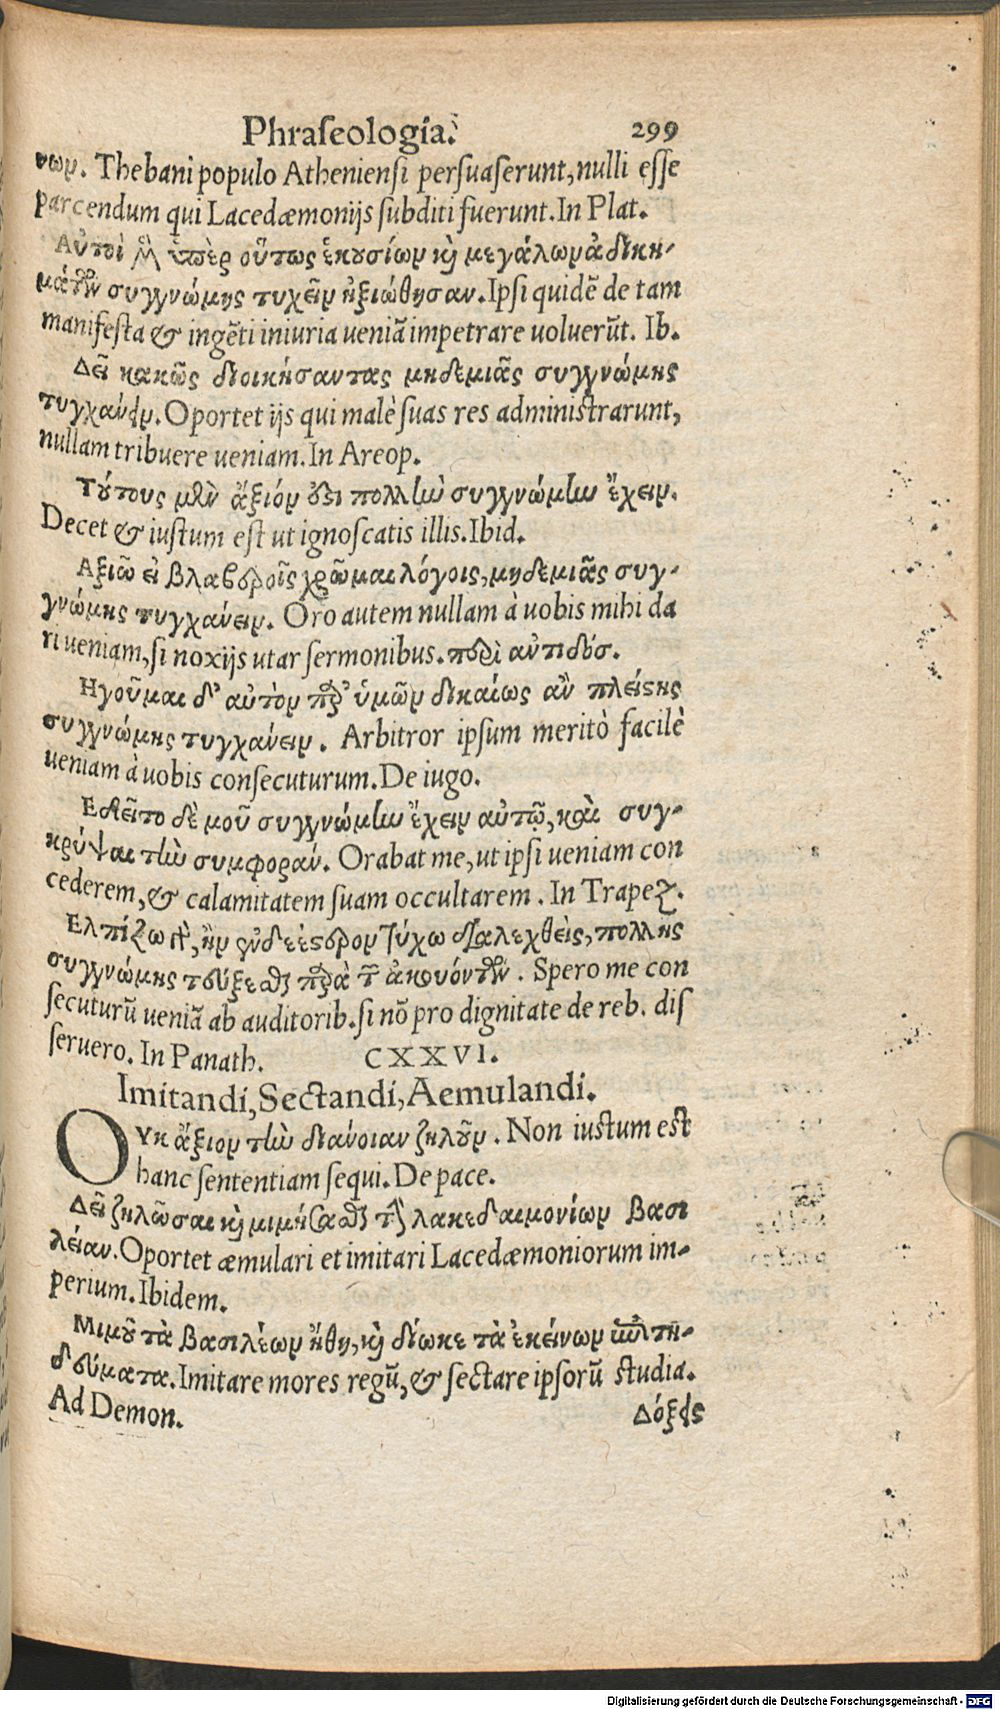 Phraseologia. 299
νων. Thebani populo Atheniensi persuaserunt, nulli esse
parcendum qui Lacedæmonijs subditi fuerunt. In Plat.
Αὐτοὶ μὲν ὑπὲρ οὕτως ἑκουσίων κὶ μεγάλων ἀδικη-
μάτων συγγνώμης τυχεῖν ἠξιώθησαν. Ipsi quidē de tam
manifesta & ingēti iniuria veniā impetrare uoluerūt. Ib.
Δεῖ κακῶς διοικήσαντας μηδεμιᾶς συγγνώμης
τυγχάνειν. Oportet ijs qui malè suas res administrarunt,
nullam tribuere ueniam. In Areop.
Τούτους μὲν ἄξιόν ὅτι πολλὴν συγγνώμην ἔχειν.
Decet & iustum est ut ignoscatis illis. Ibid.
Αξιῶ εἰ βλαβεροῖς χρῶμαι λόγοις, μηδεμιᾶς συγ-
γνώμης τυγχάνειν. Oro autem nullam à uobis mihi da
ri ueniam, si noxijs utar sermonibus. περὶ αὐτιδόσ.
Ηγοῦμαι δ' αὐτὸν παρ' ὑμῶν δικαίως αὐ πλείςης
συγγνώμης τυγχάνειν. Arbitror ipsum meritò facilè
ueniam à uobis consecuturum. De iugo.
Εδεῖτο δὲ μοῦ συγγνώμην ἔχειν αὐτῷ, καὶ συγ-
κρύψαι τὴν συμφοραν. Orabat me, ut ipsi ueniam con
cederem, & calamitatem suam occultarem. In Trapez.
Ελπίζω δὲ, ἢν ἐνδεέςερον τύχω διαλεχθεὶς, πολλῆς
συγγνώμης τεύξεσθαι παρὰ τῶν ἀκουόντων. Spero me con
secuturū ueniā ab auditorib. si nō pro dignitate de reb. dis
seruero. In Panath. CXXVI.
Imitandi, Sectandi, Aemulandi.
ΟΥκ ἄξιον τὴν διάνοιαν ζηλοῦν. Non iustum est
hanc sententiam sequi. De pace.
Δεῖ ζηλῶσαι κὶ μιμήσασθαι τὴν λακεδαιμονίων βασι
λείαν. Oportet æmulari et imitari Lacedæmoniorum im-
perium. Ibidem.
Μιμοῦ τὰ βασιλέων ἤθη, κὶ δίωκε τὰ ἐκείνων ἐπιτη-
δεύματα. Imitare mores regū, & sectare ipsorū studia.
Ad Demon. Δόξεις
Digitalisierung gefördert durch die Deutsche Forschungsgemeinschaft - DFG